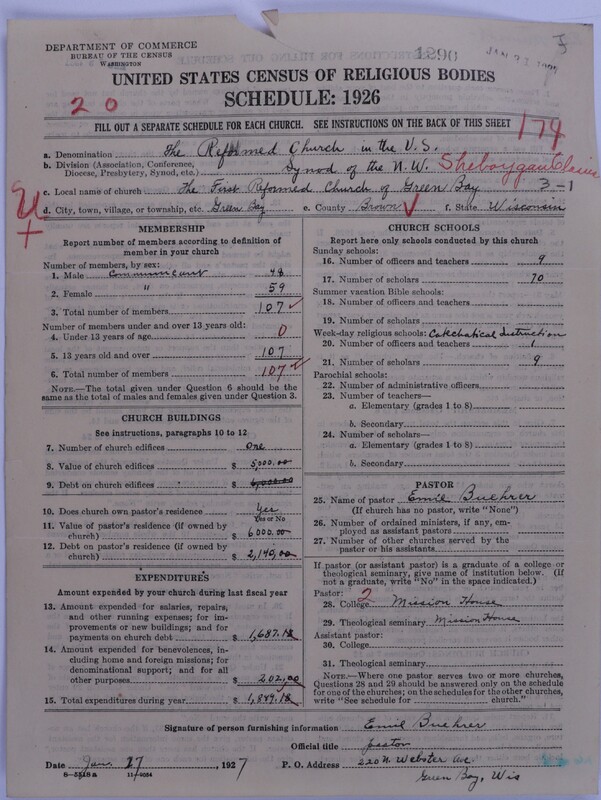 DEPARTMENT OF COMMERCE
BUREAU OF THE CENSUS
WASHINGTON
1290
UNITED STATES CENSUS OF RELIGIOUS BODIES
SCHEDULE: 1926
20
FILL OUT A SEPARATE SCHEDULE FOR EACH CHURCH. SEE INSTRUCTIONS ON THE BACK OF THIS SHEET
174
a. Denomination The Reformed Church in the U.S.
b. Division (Association, Conference, Diocese, Presbytery, Synod, etc.) Synod of the N.W. Sheboygan Classis
c. Local name of church The First Reformed Church of Green Bay 3-1
d. City, town, village, or township, etc. Green Bay e. County Brown f. State Wisconsin
MEMBERSHIP
Report number of members according to definition of
member in your church
Number of members, by sex:
1. Male Communicant 48
2. Female " 59
3. Total number of members 107
Number of members under and over 13 years old:
4. Under 13 years of age 0
5. 13 years old and over 107
6. Total number of members 107
NOTE.—The total given under Question 6 should be
the same as the total of males and females given under Question 3.
CHURCH BUILDINGS
See instructions, paragraphs 10 to 12
7. Number of church edifices one
8. Value of church edifices $ 5,000.00
9. Debt on church edifices $
10. Does church own pastor's residence Yes
Yes or No
11. Value of pastor's residence (if owned by
church) $ 6000.00
12. Debt on pastor's residence (if owned by
church) $ 2,140.00
EXPENDITURES
Amount expended by your church during last fiscal year
13. Amount expended for salaries, repairs,
and other running expenses; for im-
provements or new buildings; and for
payments on church debt $ 1,687.18
14. Amount expended for benevolences,
including home and foreign missions; for
denominational support; and for all
other purposes $ 202.00
15. Total expenditures during year $ 1,889.18
CHURCH SCHOOLS
Report here only schools conducted by this church
Sunday schools:
16. Number of officers and teachers 9
17. Number of scholars 70
Summer vacation Bible schools:
18. Number of officers and teachers
19. Number of scholars
Week-day religious schools: Catechatical Instruction
20. Number of officers and teachers 1
21. Number of scholars 9
Parochial schools:
22. Number of administrative officers
23. Number of teachers—
a. Elementary (grades 1 to 8)
b. Secondary
24. Number of scholars—
a. Elementary (grades 1 to 8)
b. Secondary
PASTOR
25. Name of pastor Emil Buehrer
(If church has no pastor, write "None")
26. Number of ordained ministers, if any, em-
ployed as assistant pastors
27. Number of other churches served by the
pastor or his assistants
If pastor (or assistant pastor) is a graduate of a college or
theological seminary, give name of institution below. (If
not a graduate, write "No" in the space indicated.)
Pastor: 2
28. College Mission House
29. Theological seminary Mission House
Assistant pastor:
30. College
31. Theological seminary
NOTE.—Where one pastor serves two or more churches,
Questions 28 and 29 should be answered only on the schedule
for one of the churches; on the schedules for the other churches,
write "See schedule for church."
Signature of person furnishing information Emil Buehrer
Official title pastor
Date Jan. 27, 1927 P. O. Address 220 N. Webster Ave.
8-5518a 11-9054 Green Bay, Wis